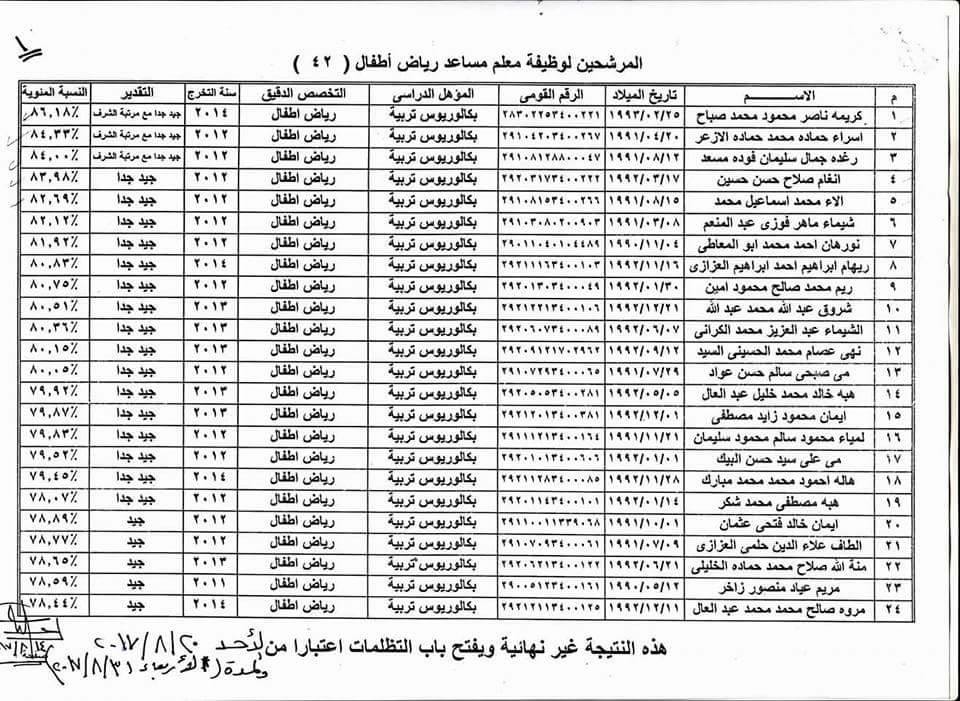 ١
المرشحين لوظيفة معلم مساعد رياض أطفال ( ٤٢ )
م الاســـــم تاريخ الميلاد الرقم القومى المؤهل الدراسى التخصص الدقيق سنة التخرج التقدير النسبة المئوية
١ كريمه ناصر محمود محمد صباح ١٩٩٣/٠٢/٢٥ ٢٨٣٠٢٢٥٣٤٠٠٢٢١ بكالوريوس تربية رياض اطفال ٢٠١٤ جيد جدا مع مرتبة الشرف ٨٦,١٨٪
٢ اسراء حماده محمد حماده الازعر ١٩٩١/٠٤/٢٠ ٢٩١٠٤٢٠٣٤٠٠٢٦٧ بكالوريوس تربية رياض اطفال ٢٠١٢ جيد جدا مع مرتبة الشرف ٨٤,٣٣٪
٣ رغده جمال سليمان فوده مسعد ١٩٩١/٠٨/١٢ ٢٩١٠٨١٢٨٨٠٠٠٤٧ بكالوريوس تربية رياض اطفال ٢٠١٢ جيد جدا مع مرتبة الشرف ٨٤,٠٠٪
٤ انغام صلاح حسن حسين ١٩٩٢/٠٣/١٧ ٢٩٢٠٣١٧٣٤٠٠٢٢٢ بكالوريوس تربية رياض اطفال ٢٠١٢ جيد جدا ٨٣,٩٨٪
٥ الاء محمد اسماعيل محمد ١٩٩١/٠٨/١٥ ٢٩١٠٨١٥٣٤٠٠٢٦٦ بكالوريوس تربية رياض اطفال ٢٠١٢ جيد جدا ٨٢,٦٩٪
٦ شيماء ماهر فوزى عبد المنعم ١٩٩١/٠٣/٠٨ ٢٩١٠٣٠٨٠٢٠٠٩٠٣ بكالوريوس تربية رياض اطفال ٢٠١٢ جيد جدا ٨٢,١٢٪
٧ نورهان احمد محمد ابو المعاطى ١٩٩٠/١١/٠٤ ٢٩٠١١٠٤٠١٠٤٤٨٩ بكالوريوس تربية رياض اطفال ٢٠١٢ جيد جدا ٨١,٩٢٪
٨ ريهام ابراهيم احمد ابراهيم العزازى ١٩٩٢/١١/١٦ ٢٩٢١١١٦٣٤٠٠١٠٣ بكالوريوس تربية رياض اطفال ٢٠١٤ جيد جدا ٨٠,٨٣٪
٩ ريم محمد صالح محمود امين ١٩٩٢/٠١/٣٠ ٢٩٢٠١٣٠٣٤٠٠٠٤٩ بكالوريوس تربية رياض اطفال ٢٠١٢ جيد جدا ٨٠,٧٥٪
١٠ شروق عبد الله محمد عبد الله ١٩٩٢/١٢/٢١ ٢٩٢١٢٢١٣٤٠٠١٠٦ بكالوريوس تربية رياض اطفال ٢٠١٣ جيد جدا ٨٠,٥١٪
١١ الشيماء عبد العزيز محمد الكرانى ١٩٩٢/٠٦/٠٧ ٢٩٢٠٦٠٧٣٤٠٠٠٨٩ بكالوريوس تربية رياض اطفال ٢٠١٣ جيد جدا ٨٠,٣٦٪
١٢ نهى عصام محمد الحسينى السيد ١٩٩٢/٠٩/١٢ ٢٩٢٠٩١٢١٧٠٢٩٦٢ بكالوريوس تربية رياض اطفال ٢٠١٣ جيد جدا ٨٠,١٥٪
١٣ مى صبحى سالم حسن عواد ١٩٩١/٠٧/٢٩ ٢٩١٠٧٢٩٣٤٠٠٠٦٥ بكالوريوس تربية رياض اطفال ٢٠١٢ جيد جدا ٨٠,٠٥٪
١٤ هبه خالد محمد خليل عبد العال ١٩٩٢/٠٥/٠٥ ٢٩٢٠٥٠٥٣٤٠٠٢٨١ بكالوريوس تربية رياض اطفال ٢٠١٣ جيد جدا ٧٩,٩٢٪
١٥ ايمان محمود زايد مصطفى ١٩٩٢/١٢/٠١ ٢٩٢١٢٠١٣٤٠٠٣٨١ بكالوريوس تربية رياض اطفال ٢٠١٣ جيد جدا ٧٩,٨٧٪
١٦ لمياء محمود سالم محمود سليمان ١٩٩١/١١/٢١ ٢٩١١١٢١٣٤٠٠١٦٤ بكالوريوس تربية رياض اطفال ٢٠١٢ جيد جدا ٧٩,٨٣٪
١٧ مى على سيد حسن البيك ١٩٩٢/٠١/٠١ ٢٩٢٠١٠١٣٤٠٠٦٠٦ بكالوريوس تربية رياض اطفال ٢٠١٢ جيد جدا ٧٩,٥٢٪
١٨ هاله احمود محمد محمد مبارك ١٩٩٢/١١/٢٨ ٢٩٢١١٢٨٣٤٠٠٠٨٥ بكالوريوس تربية رياض اطفال ٢٠١٤ جيد جدا ٧٩,٤٥٪
١٩ هبه مصطفى محمد شكر ١٩٩٢/٠١/١٤ ٢٩٢٠١١٤٣٤٠٠١٠١ بكالوريوس تربية رياض اطفال ٢٠١٢ جيد جدا ٧٨,٠٧٪
٢٠ ايمان خالد فتحى عثمان ١٩٩١/١٠/٠١ ٢٩١١٠٠١١٣٣٩٠٦٨ بكالوريوس تربية رياض اطفال ٢٠١٢ جيد ٧٨,٨٩٪
٢١ الطاف علاء الدين حلمى العزازى ١٩٩١/٠٧/٠٩ ٢٩١٠٧٠٩٣٤٠٠٠٦١ بكالوريوس تربية رياض اطفال ٢٠١٢ جيد ٧٨,٧٧٪
٢٢ منة الله صلاح محمد حماده الخليلى ١٩٩٢/٠٦/٢١ ٢٩٢٠٦٢١٣٤٠٠١٢٢ بكالوريوس تربية رياض اطفال ٢٠١٣ جيد ٧٨,٦٥٪
٢٣ مريم عياد منصور زاخر ١٩٩٠/٠٥/١٢ ٢٩٠٠٥١٢٣٤٠٠١٦١ بكالوريوس تربية رياض اطفال ٢٠١١ جيد ٧٨,٥٩٪
٢٤ مروه صالح محمد محمد عبد العال ١٩٩٢/١٢/١١ ٢٩٢١٢١١٣٤٠٠١٢٥ بكالوريوس تربية رياض اطفال ٢٠١٤ جيد ٧٨,٤٤٪
هذه النتيجة غير نهائية ويفتح باب التظلمات اعتبارا من الأحد ٢٠١٧/٨/٢٠
ولمدة الأربعاء ٢٠١٧/٨/٣١